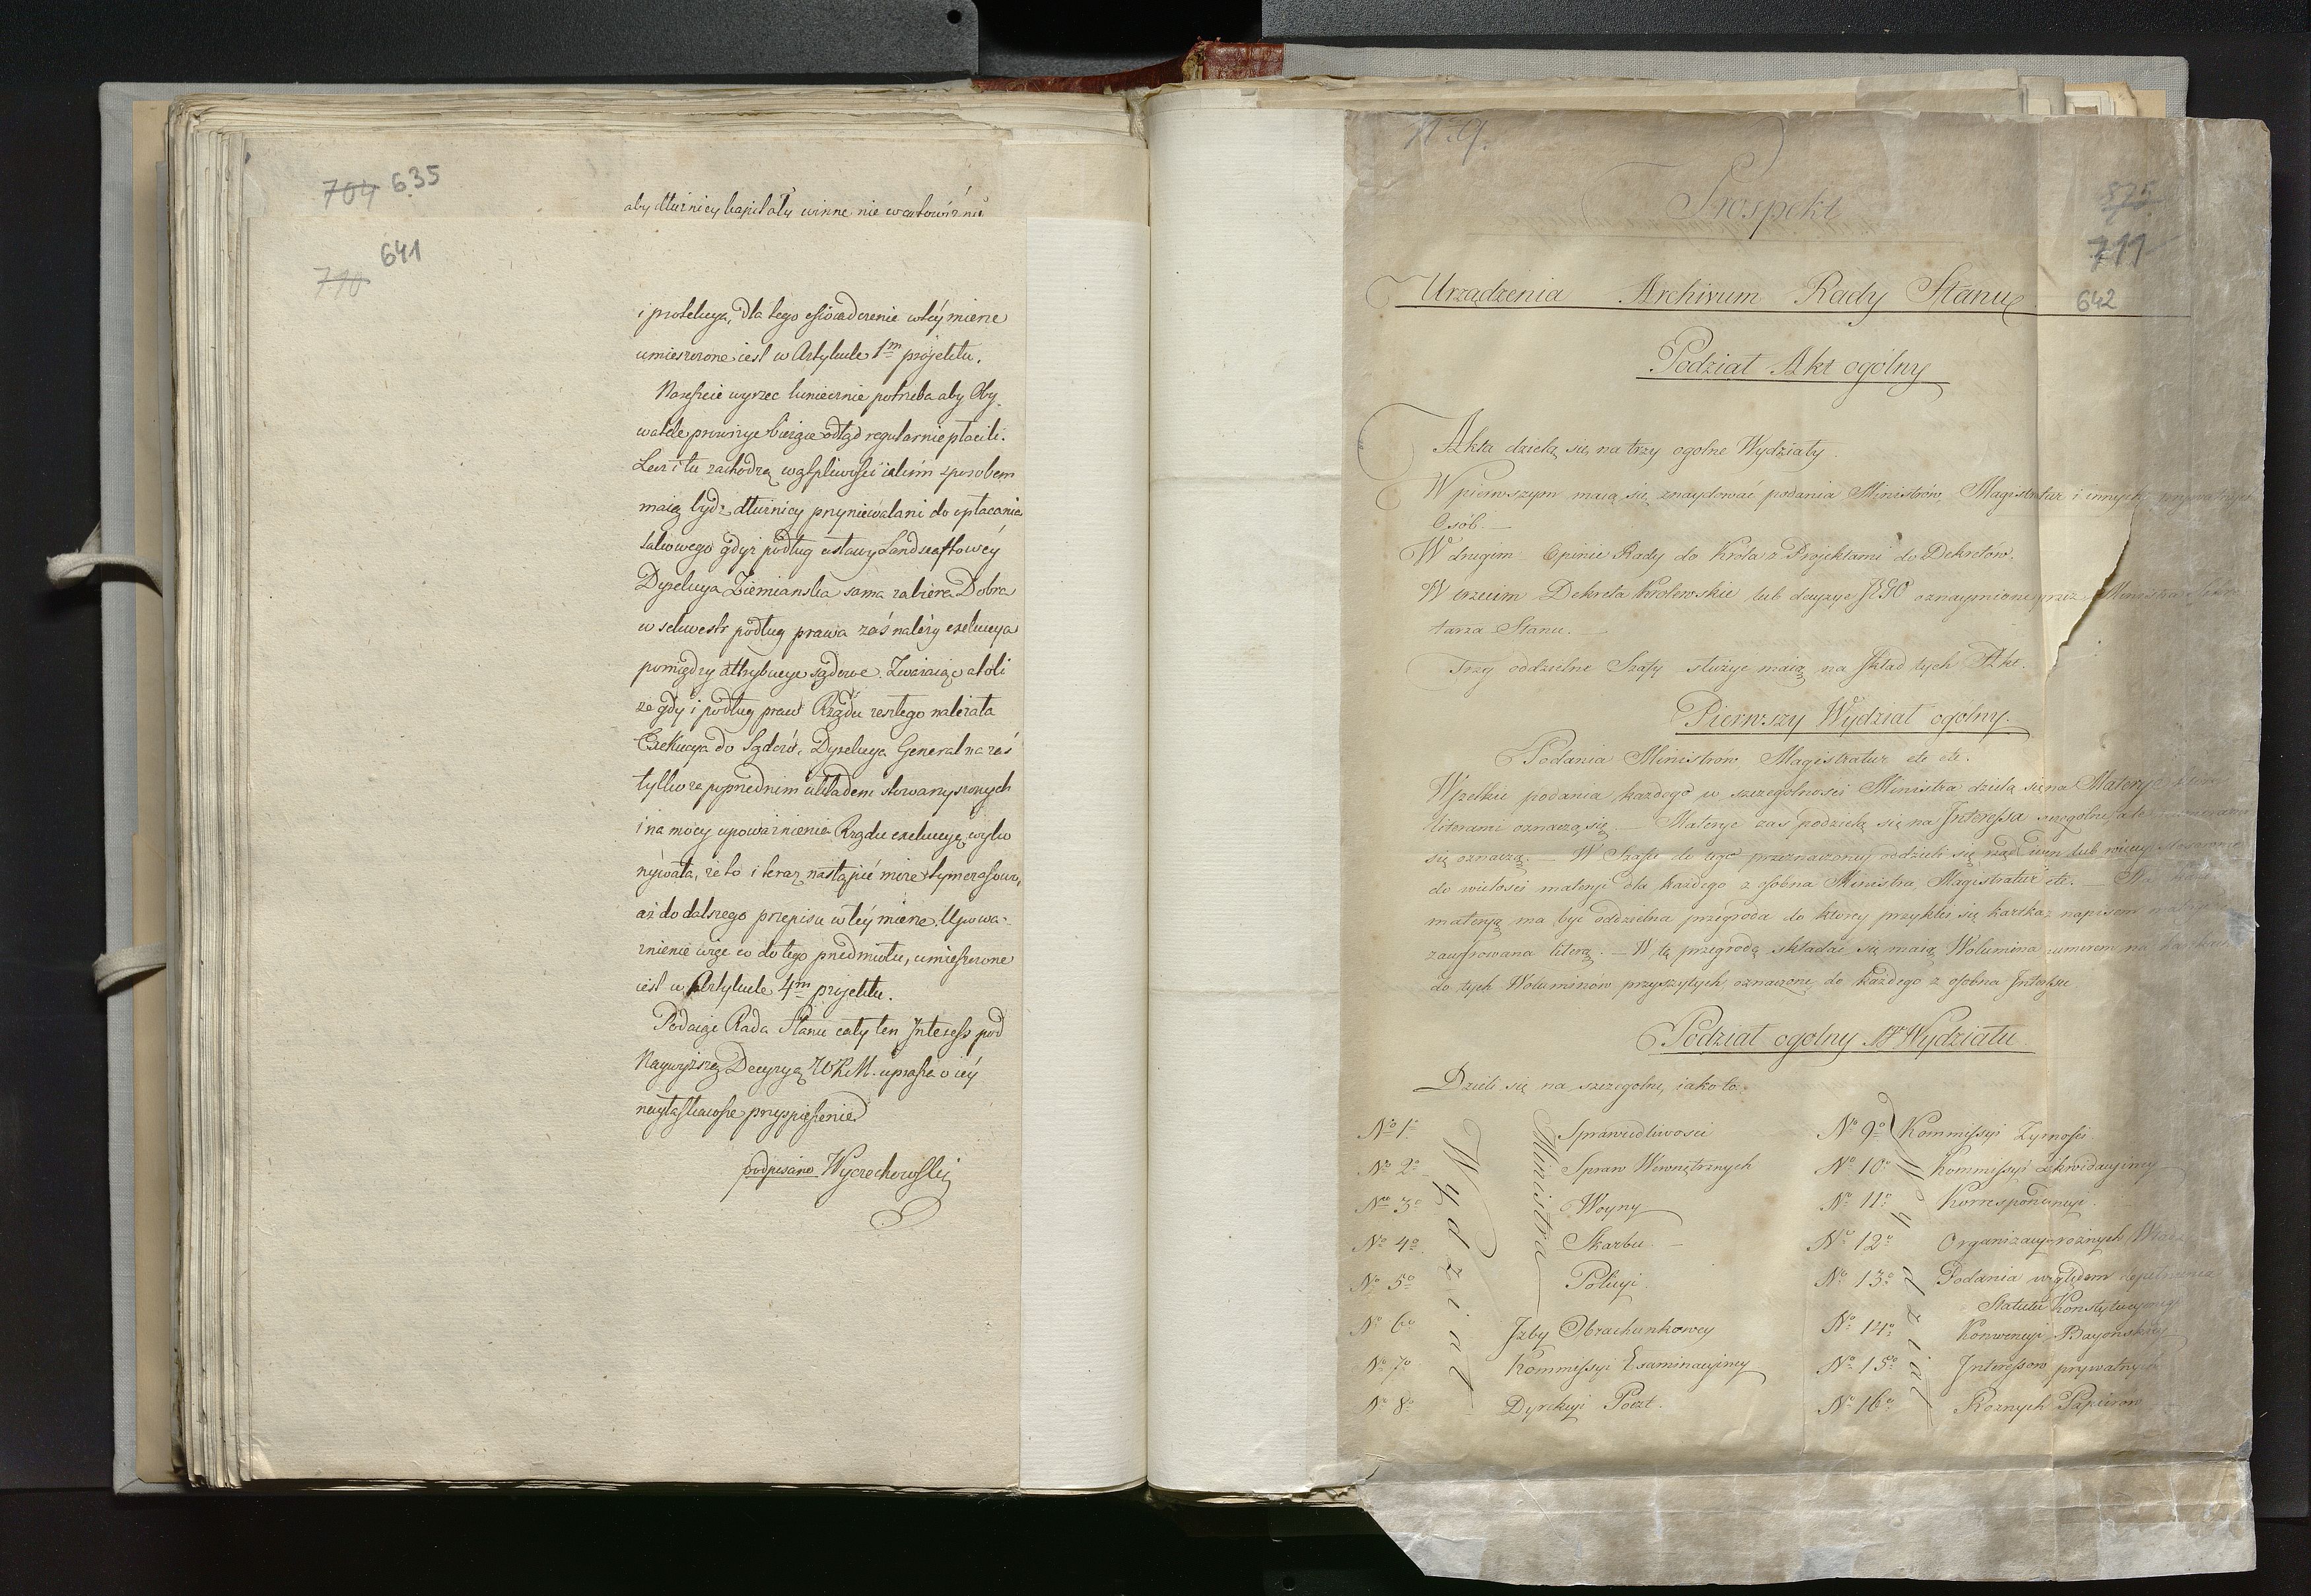 704 635
aby dłużnicy kapitały winne nie
710 641
i protekcya, dla tego oświadczenie w téy mierze
umieszczone iest w Artykule 1m projektu.
Nareszcie wyrzec koniecznie potrzeba aby Oby-
watele prowizye bieżące odtąd regularnie płacili.
Lecz i tu zachodzą wątpliwości iakim sposobem
maią bydź dłużnicy przyniewalani do opłacania
takowego gdyż podług ustawy Landszaftowéy
Dyrekcya Ziemianska sama zabiera Dobra
w sekwestr podług prawa zaś należy exekucya
pomiędzy attrybucye sądowe. Zważaiąc atoli
że gdy i podług praw Rządu zeszłego należała
Exekucya do Sądów, Dyrekcya Generalna zaś
tylko za poprzednim układem stowarzyszonych
i na mocy upoważnienia Rządu exekucyę wyko
nywała, że to i teraz nastąpić może tymczasowo,
aż do dalszego przepisu w téy mierze. Upowa-
żnienie więc co do tego przedmiotu, umieszczone
iest w Artykule 4m projektu.
Podaiąc Rada Stanu cały ten Interess pod
Naywyższą Decyzyą WKM. uprasza o iéy
nayłaskawsze przyspieszenie
podpisano Wyczechowski
Prospekt
875
711
642
Urządzenia Archivum Rady Stanu
Podział Akt ogólny
Akta dzielą się na trzy ogolne Wydziały.
W pierwszym maią się znaydować podania Ministrów, Magistratur i innych prywatnych
Osób.—
W drugim Opinie Rady do Krola z Projektami do Dekretów.
W trzecim Dekreta Krolewskie lub decyzye JKM oznaymione przez Ministra Sekre
tarza Stanu.—
Trzy oddzielne Szafy służyć maią na skład tych Akt.
Pierwszy Wydział ogolny.
Podania Ministrów Magistratur etc etc.
Wszelkie podania każdego w szczegolności Ministra dzielą się na Materye
literami oznaczą się — Materye zas podzielą się na Interessa szczegolne, a te numerami
się oznaczą.— W Szafie do tego przeznaczoney oddzieli się rząd ieden lub więcey stosownie
do wielości materyi dla każdego z osobna Ministra, Magistratur etc.—
materyą ma być oddzielna przegroda do ktorey przyklei się kartka z napisem
zacyfrowana literą.— W tę przegrodę składać się maią Wolumina numerem na
do tych Woluminów przyszytych oznaczone do każdego z osobna Interessu
Podział ogolny 1o Wydziału
Dzieli się na szczegolne, iako to.
No 1o Wydział Ministra Sprawiedliwości
No 2o Spraw Wewnętrznych
No 3o Woyny
No 4o Skarbu.—
No 5o Policyi.
No 6o Izby Obrachunkowey
No 7o Kommissyi Examinacyiney
No 8o Dyrekcyi Poczt.
No 9o Wydział Kommissyi Żywności
No 10o Kommissyi Likwidacyiney
No 11o Korrespondencyi.
No 12o Organizacyi rożnych
No 13o Podania względem
Statutu Konstytucyinego
No 14o Konwencyi Bayońskiey
No 15o Interessow prywatnych
No 16o Rożnych Papierow